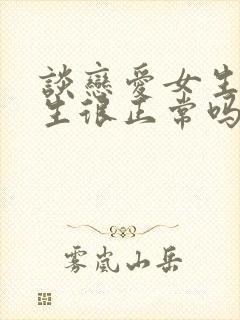 談戀愛女生
生很正常吗
雾岚山岳